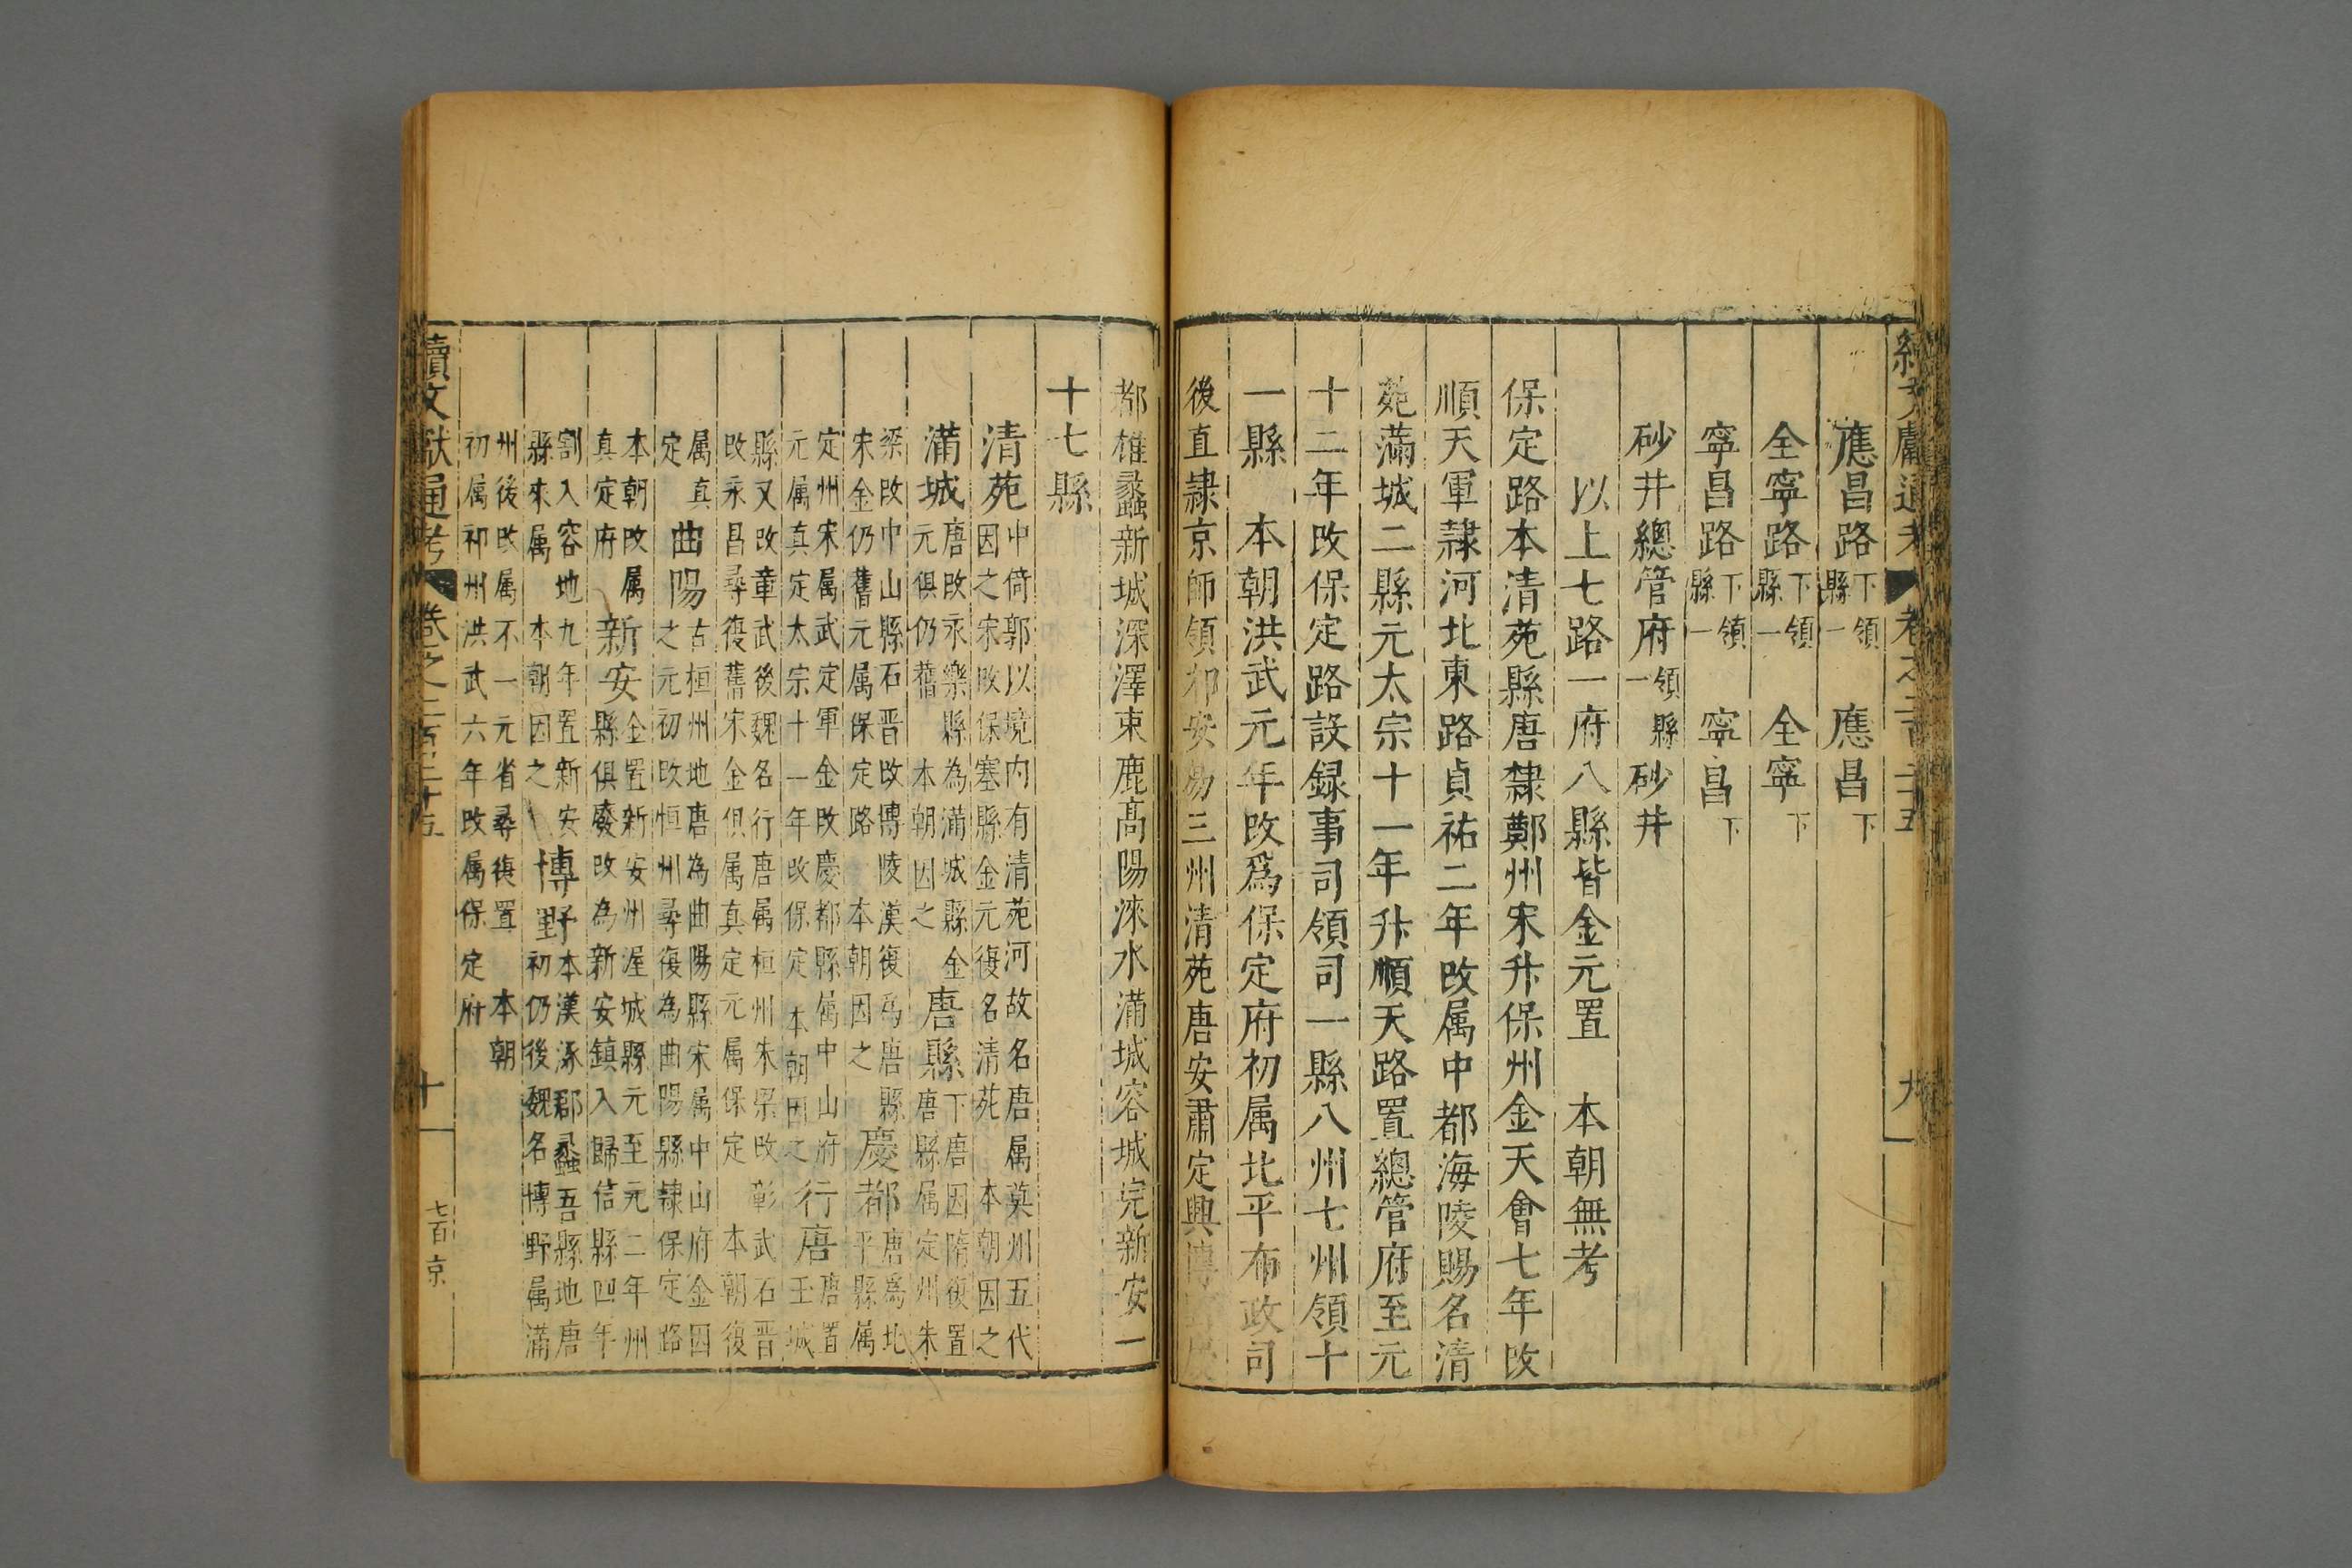 應昌路下領一縣　應昌下
全寧路下領一縣　全寧下
寧昌路下領一縣　寧昌下
砂井總管府領一縣　砂井
以上七路一府八縣皆金元置　本朝無考
保定路本清苑縣唐隸鄭州宋升保州金天會七年改
順天軍隸河北東路貞祐二年改属中都海陵賜名清
苑滿城二縣元太宗十一年升順天路置總管府至元
十二年改保定路設録事司領司一縣八州七州領十
一縣　本朝洪武元年改爲保定府初属北平布政司
後直隷京師領祁安易三州清苑唐安肅定興博野慶
都雄蠡新城深澤束鹿高陽淶水滿城容城完新安一
十七縣
清苑中倚郭以境内有清苑河故名唐属莫州五代
因之宋改保塞縣金元復名清苑　本朝因之
滿城唐改永樂縣為滿城縣金
元俱仍舊　本朝因之
唐縣下唐因隋復置
唐縣属定州朱
梁改中山縣石晋改博陵漢復為唐縣
宋金仍舊元属保定路　本朝因之
慶都唐爲北
平縣属
定州宋属武定軍金改慶都縣属中山府
元属真定太宗十一年改保定　本朝因之
行唐唐置
玉城
縣又改章武後魏名行唐属桓州朱梁改彰武石晋
改永昌尋復舊宋金俱属真定元属保定　本朝復
属真
定
曲陽古桓州地唐為曲陽縣宋属中山府金因
之元初改恒州尋復為曲陽縣隷保定路
本朝改属
真定府
新安金置新安州渥城縣元至元二年州
縣俱廢改為新安鎮入歸信縣四年
割入容地九年置新安
縣來属　本朝因之
博野本漢涿郡蠡吾縣地唐
初仍後魏名博野属滿
州後改属不一元省尋復置　本朝
初属祁州洪武六年改属保定府
續文獻通考　卷之二百二十五　九
續文獻通考　卷之二百二十五　十　七百京